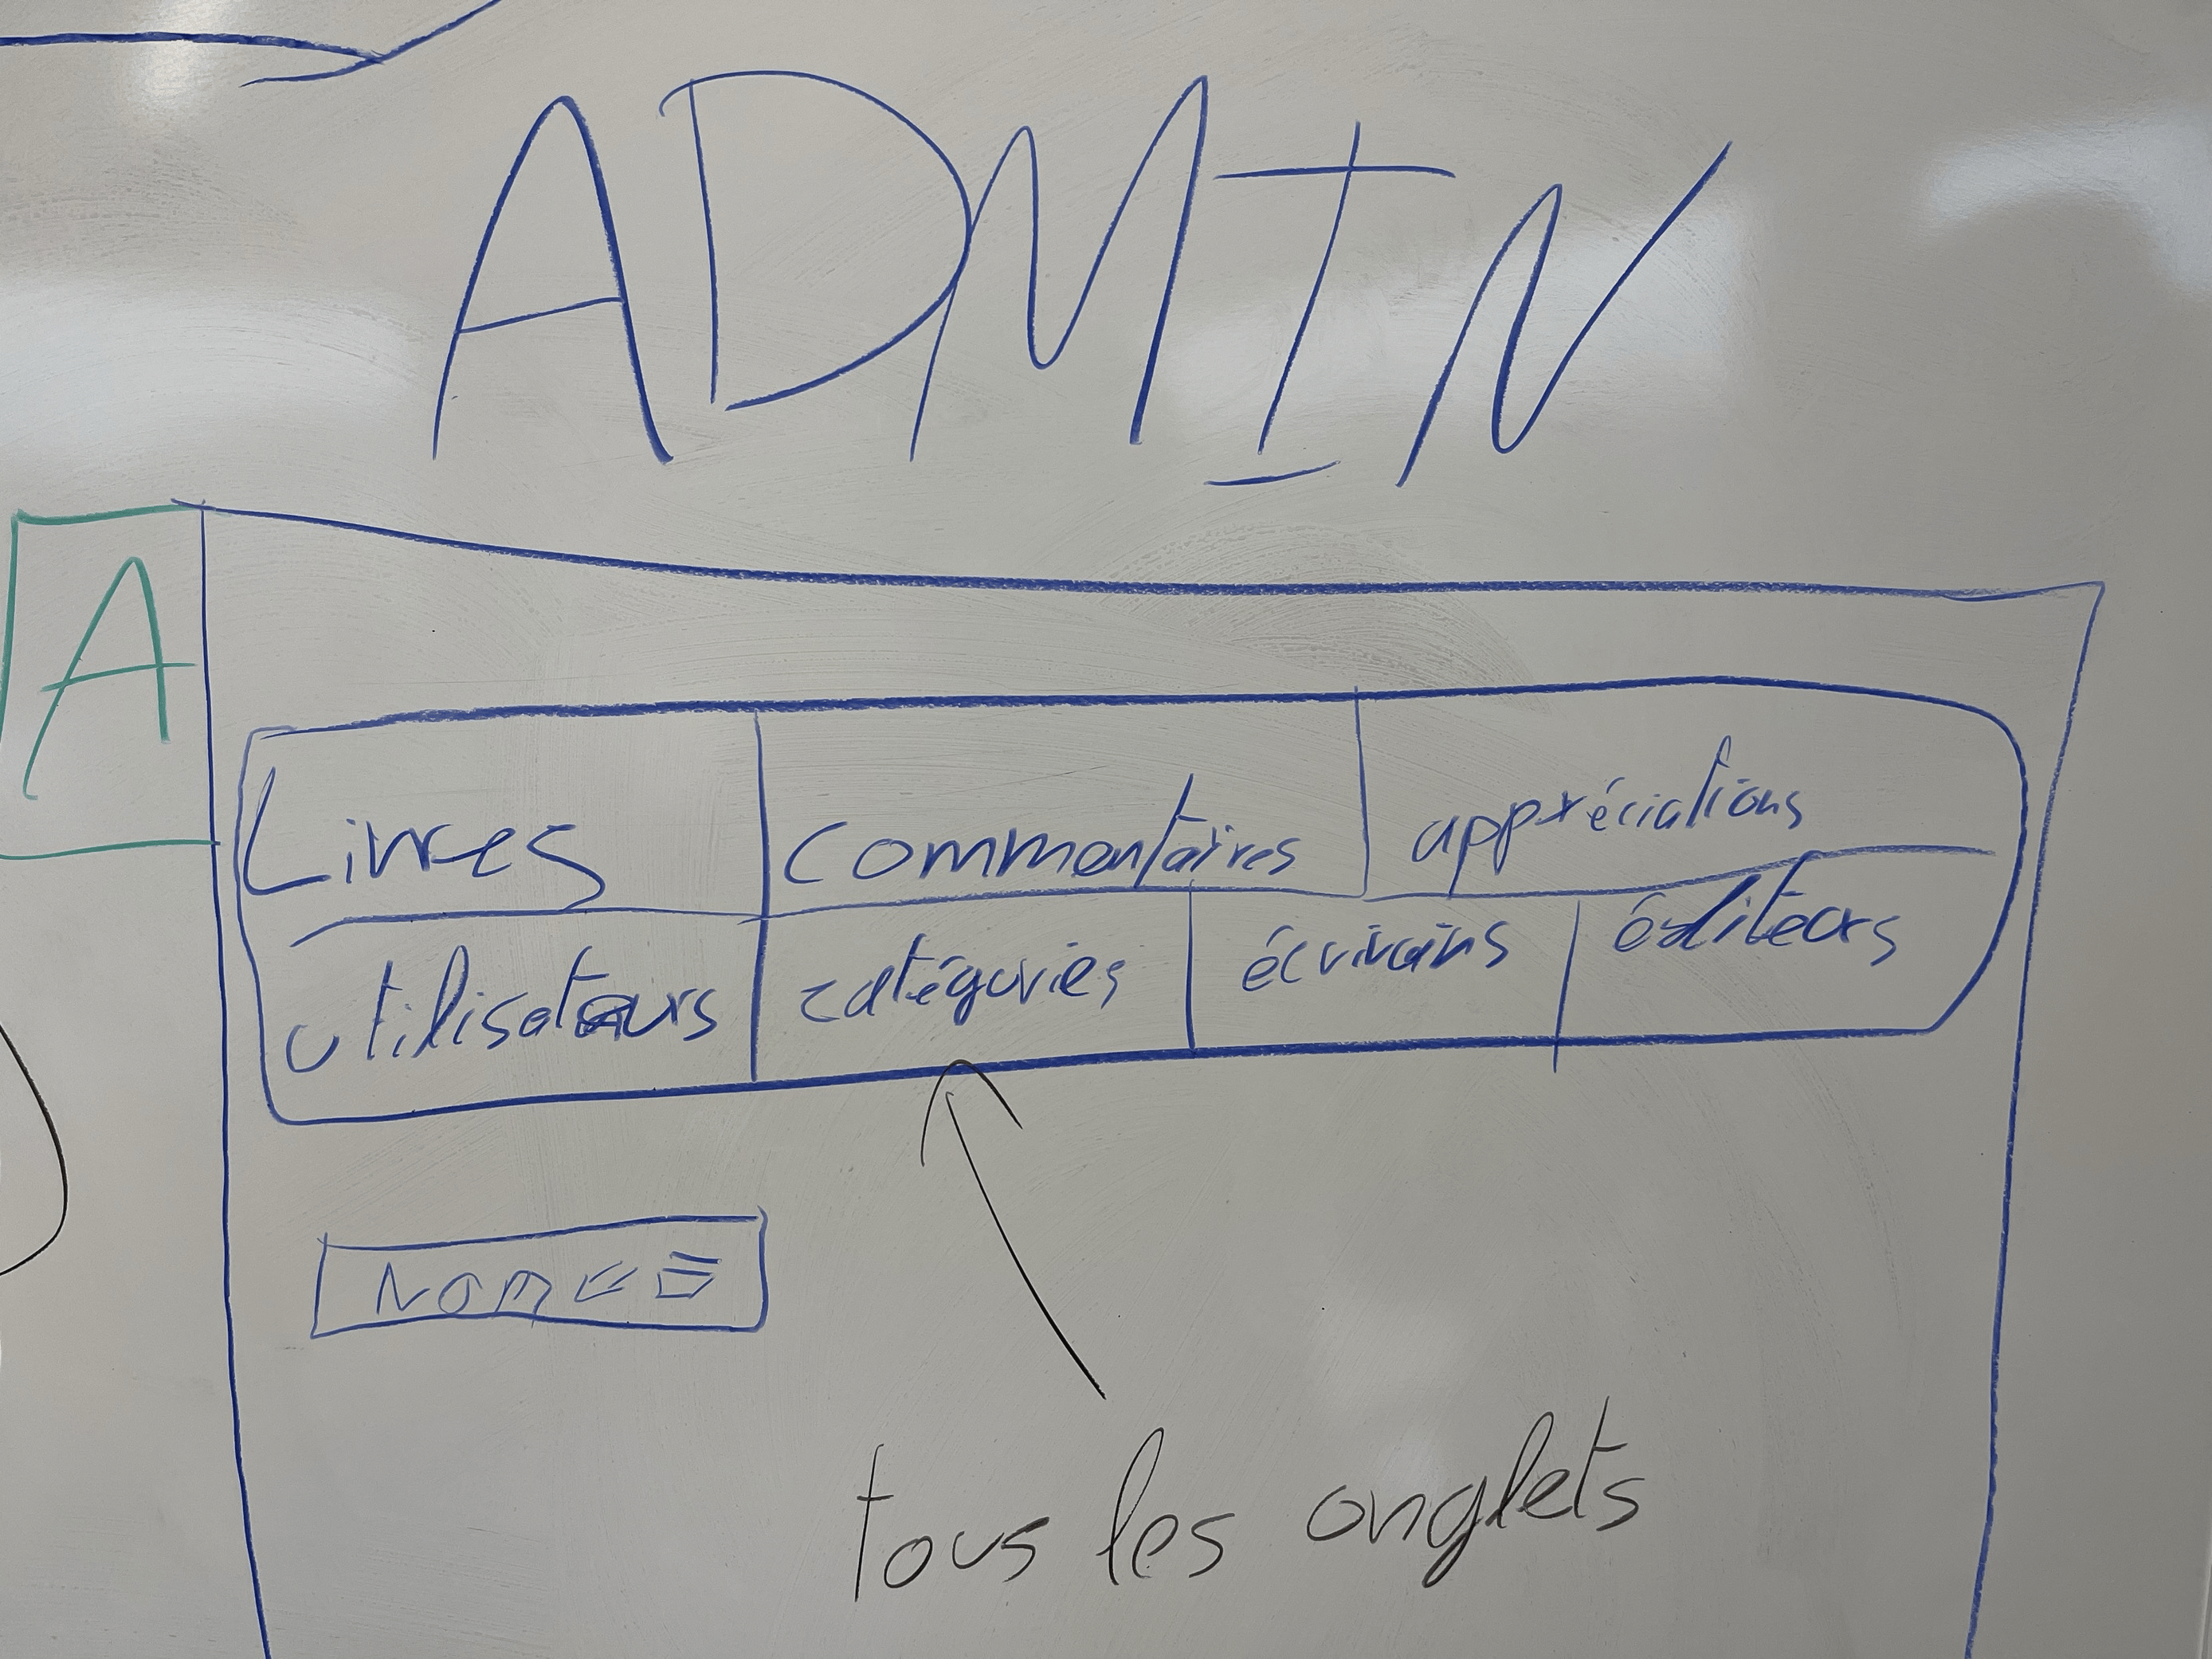 ADMIN
A
Livres commentaires appréciations
utilisateurs catégories écrivains éditeurs
Nom
tous les onglets